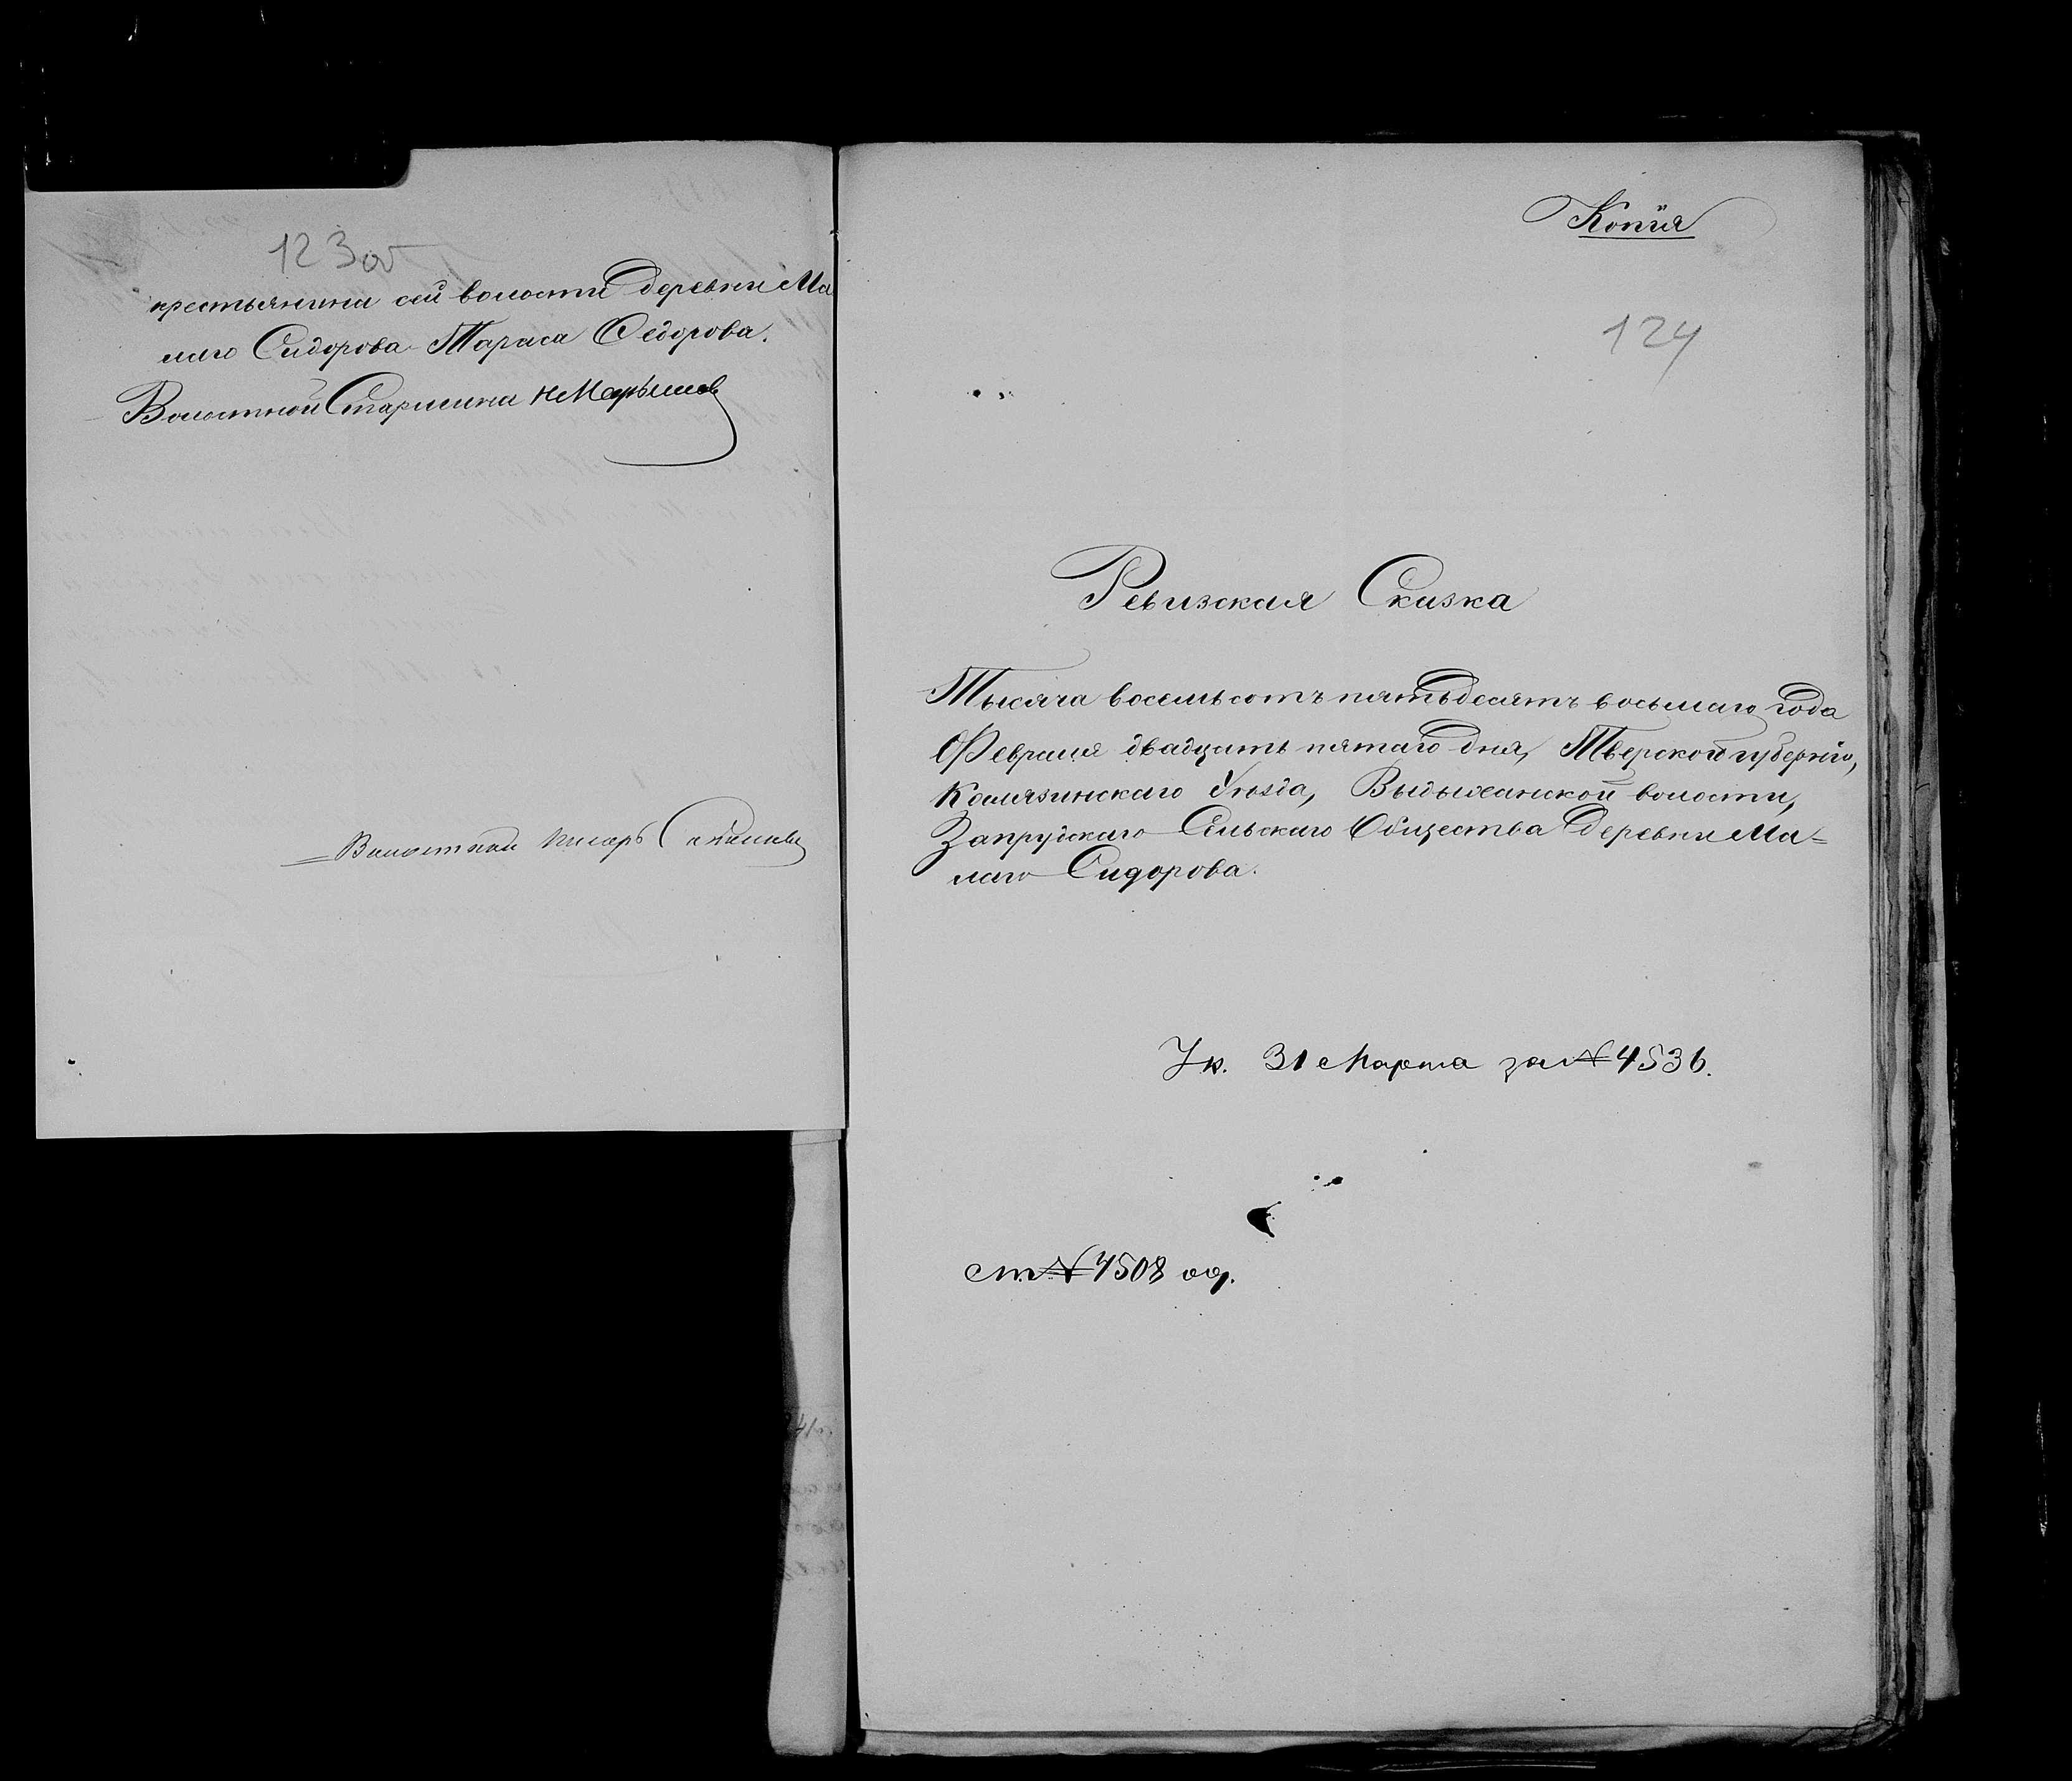 123об
крестьянина сей волости деревни Ма
лаго Сидорова Тараса Ѳедорова.
Волостной Старшина
Волостной писарь
Копія
124
Ревизская Сказка
Тысяча восемьсотъ пятьдесятъ восьмаго года
Февраля двадцать пятаго дня, Тверской губерніи,
Калязинскаго Уѣзда, Выдыжанской волости,
Запрудскаго Сельскаго Общества деревни Ма=
лаго Сидорова.
Ук. 31 Марта за № 4536.
ст. № 4508 од.